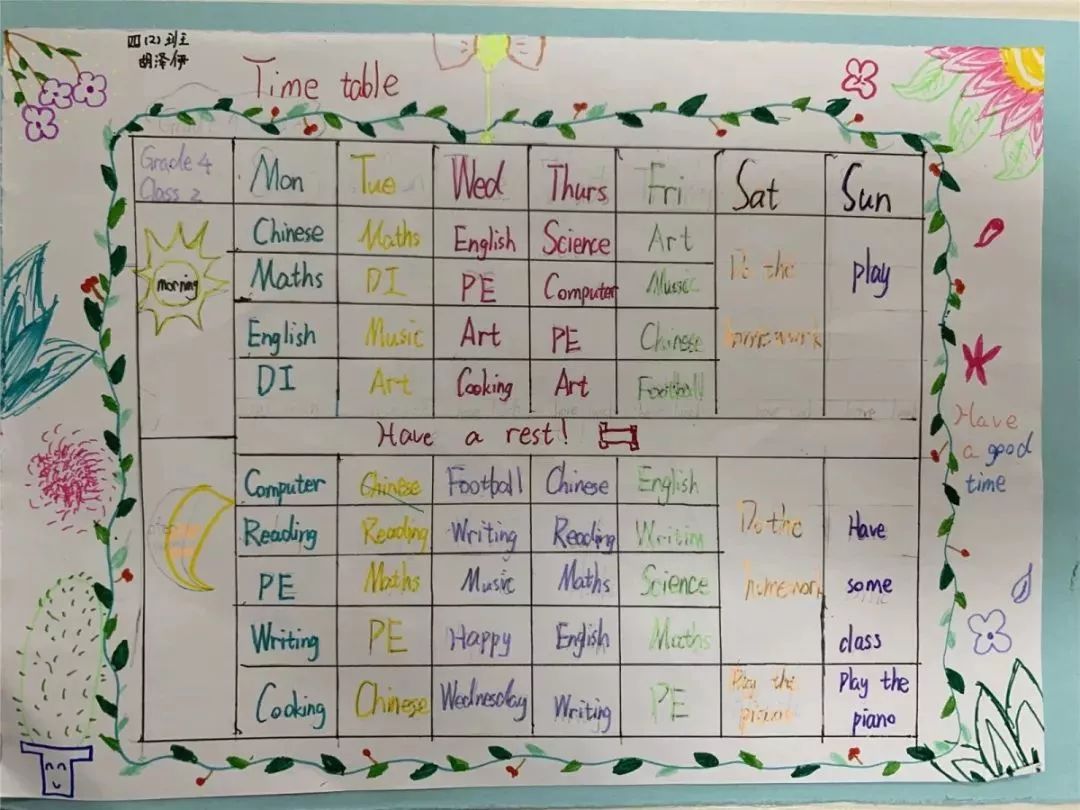 四(2)班
胡泽伊
Time table
Grade 4 Mon Tue Wed Thurs Fri Sat Sun
Class 2
Chinese Maths English Science Art
morning Maths DI PE Computer Music Do the play
English Music Art PE Chinese homework
DI Art Cooking Art Football
Have a rest!
Computer Chinese Football Chinese English
Reading Reading Writing Reading Writing Do the Have
PE Maths Music Maths Science homework some
Writing PE Happy English Maths class
Cooking Chinese Wednesday Writing PE Play the Play the
piano piano
Have
a good
time